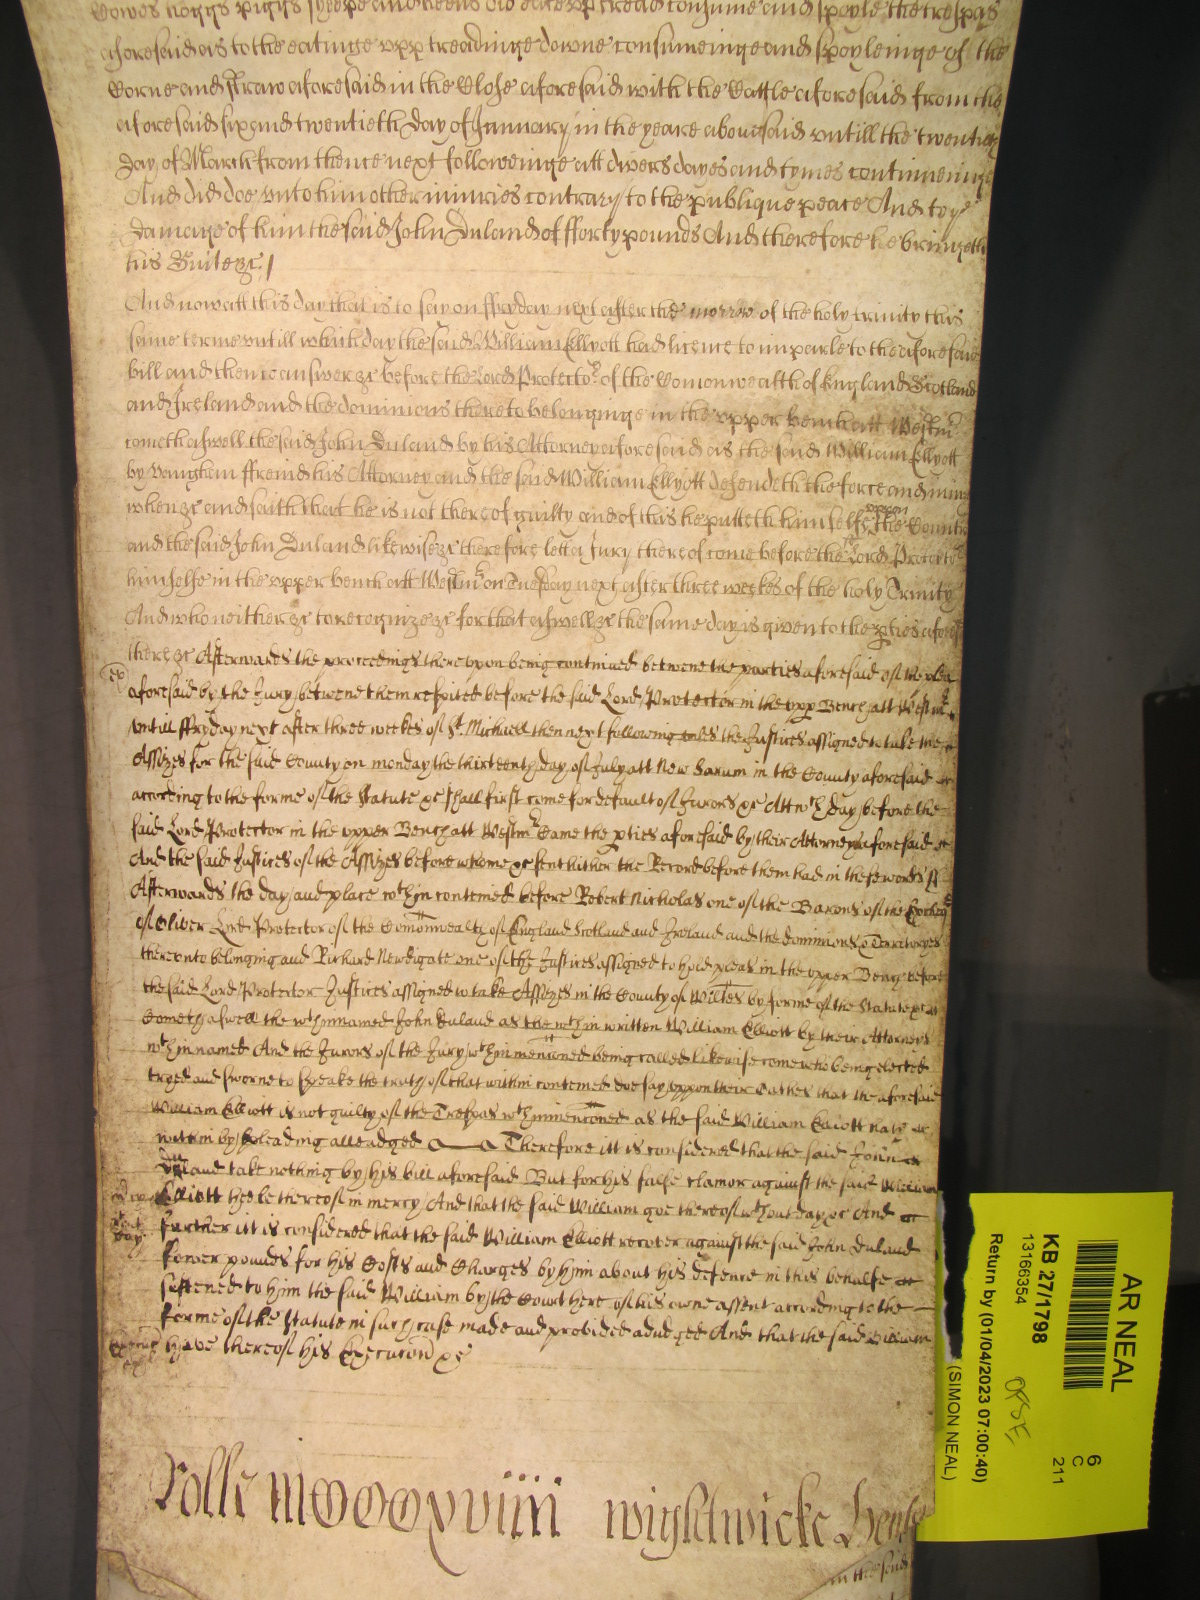 Cowes hoggs piggs sheepe and did eate upp tread consume and spoyle the trespas
aforesaid as to the eatinge upp treadinge downe consumeinge and spoyleinge of the
Corne and straw aforesaid in the Close aforesaid with the Cattle aforesaid from the
aforesaid six and twentieth day of January in the yeare abovesaid untill the twentieth
day of March from thence next followeinge att divers dayes and tymes continueinge
And did doe unto him other iniuries contrary to the publique peace And to ye
damage of him the said John Duland of fforty pounds And therefore he bringeth
his Suite &c /
And now att this day that is to say on ffryday next after the morrow of the holy trinity this
same terme untill which day the said William Ellyott had licence to imparle to the aforesaid
bill and then to answer &c before the Lord Protector of the Comonwealth of England Scotland
and Ireland and the dominions thereto belonginge in the upper bench att Westm
cometh aswell the said John Duland by his Attorney aforesaid as the said William Ellyott
by Vaughan ffreind his Attorney and the said William Ellyott defendeth the force and iniury
when &c and saith that he is not thereof guilty and of this he putteth himselfe upon the Countr
and the said John Duland likewise &c therefore lett a Jury thereof come before the Lord Protector
himselfe in the upper bench att Westm on Tuesday next after three weekes of the holy Trinity
And who neither &c to recognize &c for that aswell &c the same day is given to the pties afores
there &c Afterwards the proceedings thereupon being continued betweene the parties aforesaid of the plea
aforesaid by the Jury betweene them respited before the said Lord Protector in the upp Bench att Westm
untill ffryday next after three weekes of St. Michaell then next following unles the Justices assigned to take the
Assizes for the said County on monday the thirteenth day of July att New Sarum in the County aforesaid
according to the forme of the Statute &c shall first come for default of Jurors &c Att wch day before the
said Lord Protector in the upper Bench att Westm Came the pties aforesaid by their Attorneys aforesaid
And the said Justices of the Assizes before whome &c sent hither the Record before them had in these words ss
Afterwards the day and place wthin conteined before Robert Nicholas one of the Barons of the Excheqr
of Oliver Lord Protector of the Comonwealth of England Scotland and Ireland and the dominions & Territoryes
thereunto belonging and Richard Newdigate one of the Justices assigned to hold pleas in the upper Bench before
the said Lord Protector Justices assigned to take Assizes in the County of Wiltes by forme of the Statute &c
Cometh aswell the wthinnamed John Duland as the wthin written William Elliott by their Attorneys
wthin named And the Jurors of the Jury wthin mencioned being called likewise come who being elected
tryed and sworne to speake the truth of that within conteined doe say uppon their Oathes that the aforesaid
William Elliott is not guilty of the Trespas wthin mencioned as the said William Elliott hath
within by pleading alleadged Therefore itt is considered that the said John
Duland take nothing by his bill aforesaid But for his false clamor against the said William
Elliott hee be thereof in mercy And that the said William goe thereof wthout day &c And
further itt is considered that the said William Elliott recover against the said John Duland
pounds for his Costs and Charges by him about his defence in this behalfe
susteined to him the said William by the Court here of his owne assent according to the
forme of the Statute in such case made and provided adiudged And that the said William
have thereof his Execucion &c
Rolle Wightwicke
in the said
AR NEAL
KB 27/1798
13166354
Return by (01/04/2023 07:00:40)
(SIMON NEAL)
6
C
211